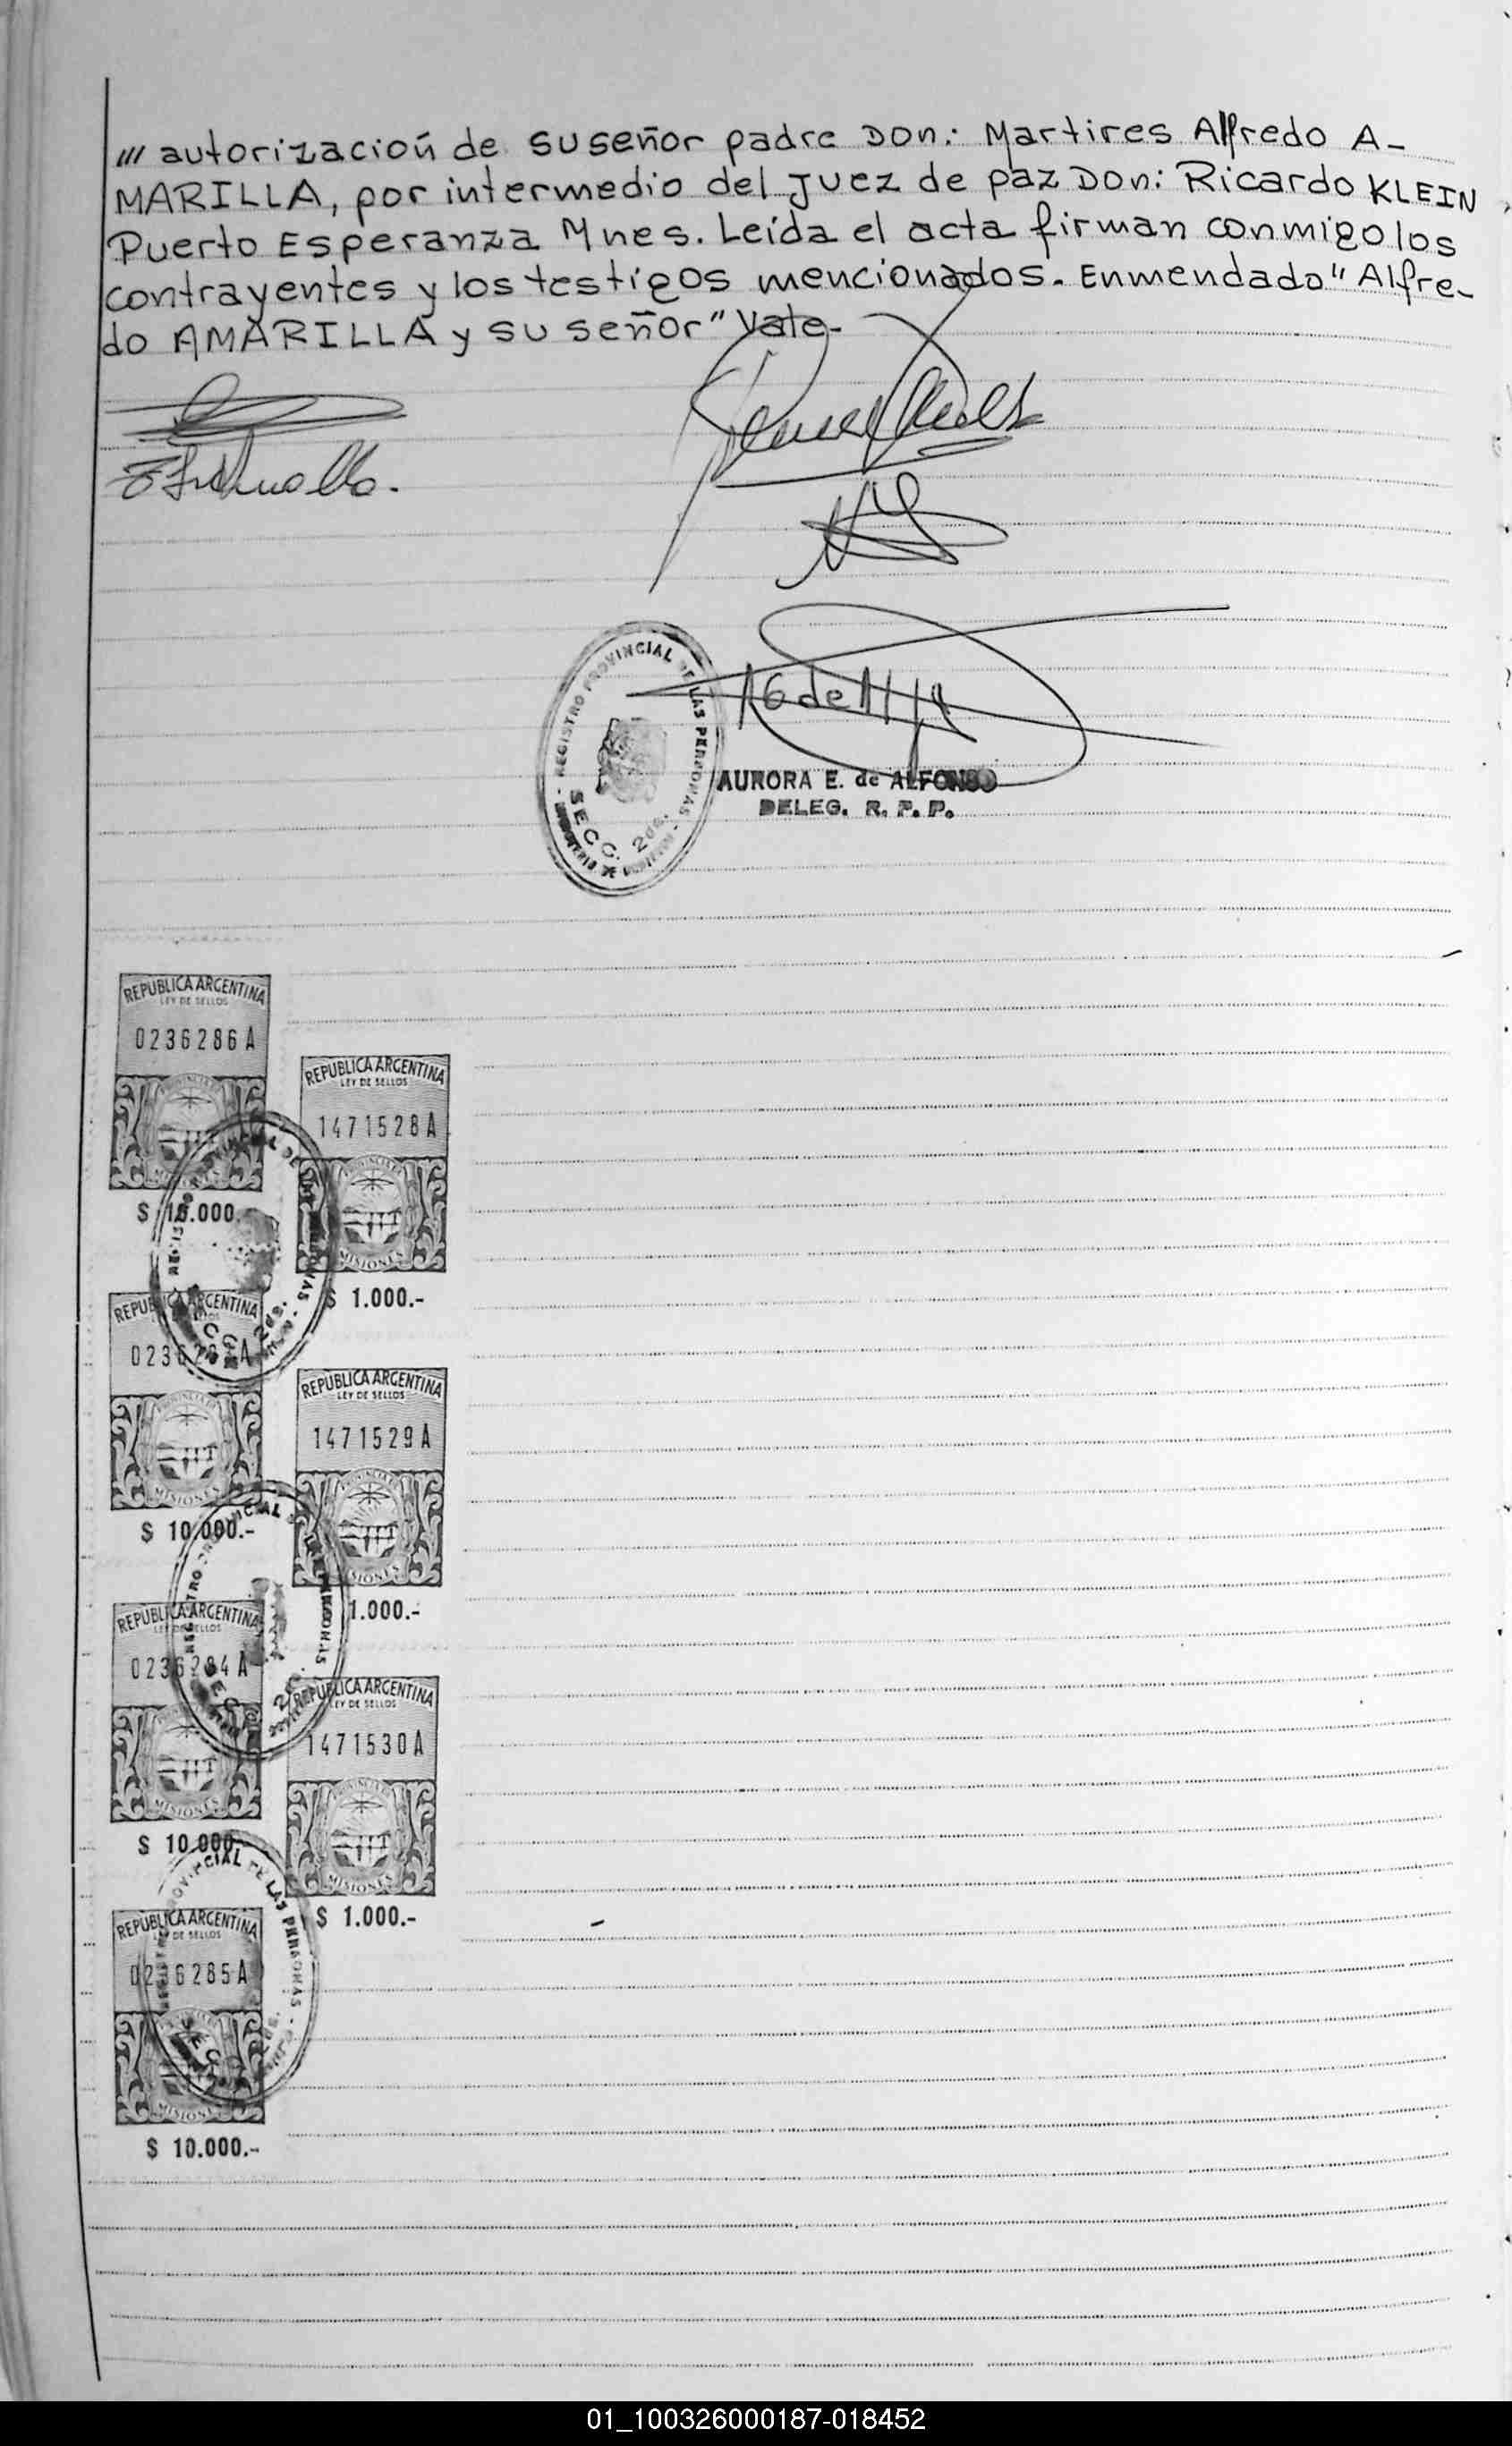 /// autorización de su señor padre Don: Martires Alfredo A-
MARILLA, por intermedio del Juez de paz Don: Ricardo KLEIN
Puerto Esperanza Mnes. Leída el acta firman conmigo los
contrayentes y los testigos mencionados. Enmendado "Alfre-
do AMARILLA y su señor" Vale-
REGISTRO PROVINCIAL DE LAS PERSONAS
SECC. 2da.
AURORA E. de ALFONSO
DELEG. R. P. P.
REPUBLICA ARGENTINA
LEY DE SELLOS
0236286A
$ 10.000
REPUBLICA ARGENTINA
LEY DE SELLOS
1471528A
MISIONES
$ 1.000.-
REPUBLICA ARGENTINA
MISIONES
$ 10.000.-
REPUBLICA ARGENTINA
LEY DE SELLOS
1471529A
MISIONES
1.000.-
REPUBLICA ARGENTINA
LEY DE SELLOS
0236284A
MISIONES
$ 10.000.-
REPUBLICA ARGENTINA
LEY DE SELLOS
1471530A
MISIONES
$ 1.000.-
REPUBLICA ARGENTINA
LEY DE SELLOS
0236285A
MISIONES
$ 10.000.-
01_100326000187-018452